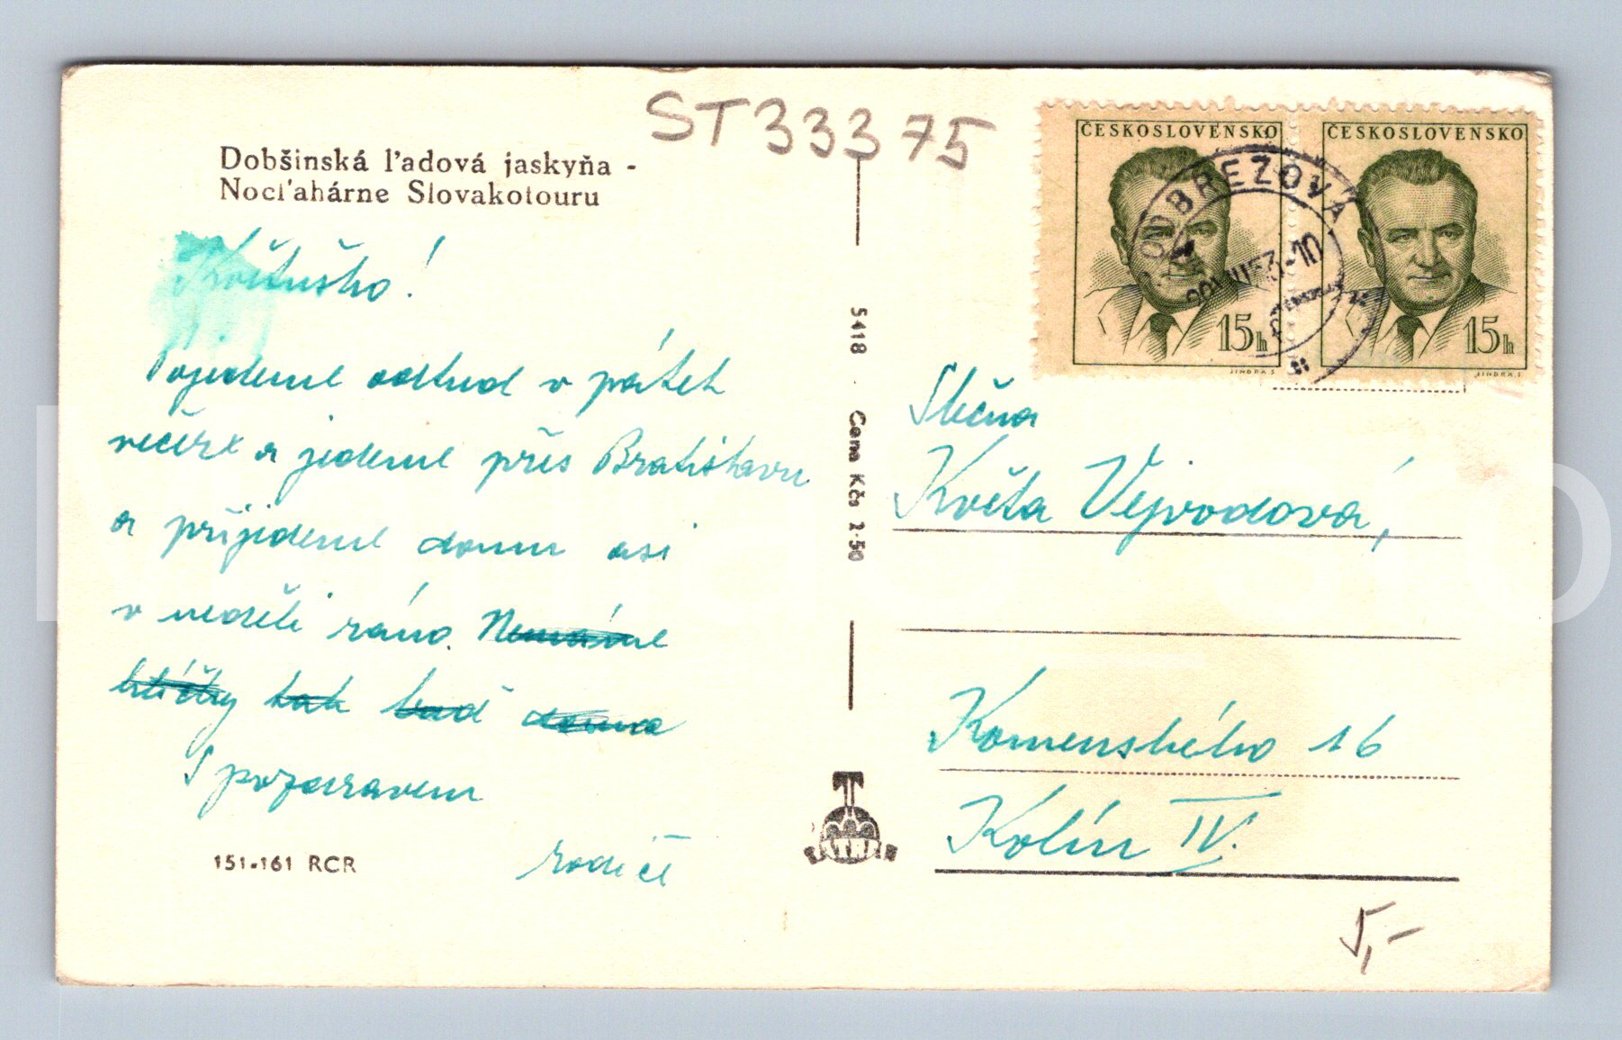 ST 333 75
Dobšinská ľadová jaskyňa -
Nocľahárne Slovakotouru
Květuško!
Pojedeme odtud v pátek
večer a jedeme přes Bratislavu
a přijedeme domu asi
v neděli ráno. Nemáme
klíčky tak buď doma
S pozdravem
rodiče
151-161 RCR
5418 · Cena Kčs 2·50
TATRAN
ČESKOSLOVENSKO
15h
JINDRA S
ČESKOSLOVENSKO
15h
JINDRA S
PODBREZOVÁ
Slečna
Květa Vejvodová,
Komenského 16
Kolín IV.
5,-